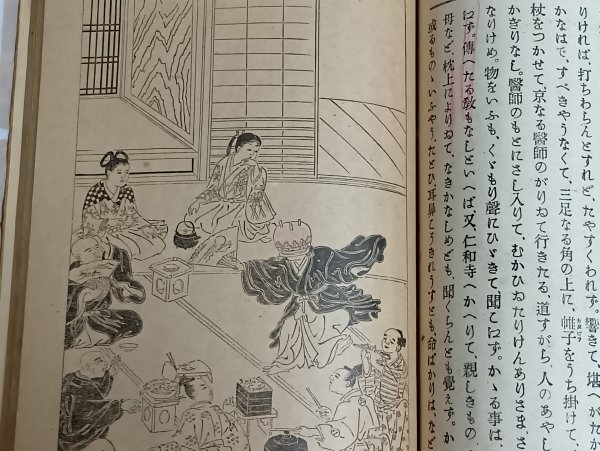 りければ、打ちわらんとすれど、たやすくわれず。響きて、堪へがたか
かなはで、すべきやうなくて、三足なる角の上に、帷子をうち掛けて、
カタビラ
杖をつかせて、京なる醫師のがりゐて行きたる、道すがら、人のあやし
かぎりなし。醫師のもとにさし入りて、むかひゐたりけんありさま、さ
なりけめ。物をいふも、くゞもり聲にひゞきて、聞こ江ず。かゝる事は、
江ず。傳へたる敎もなしといへば、又、仁和寺へかへりて、親しきもの
母など、枕上によりゐて、なきかなしめども、聞くらんとも覺えず。か
或るものゝいふやう、たとひ、耳鼻こそきれうすとも、命ばかりは、など